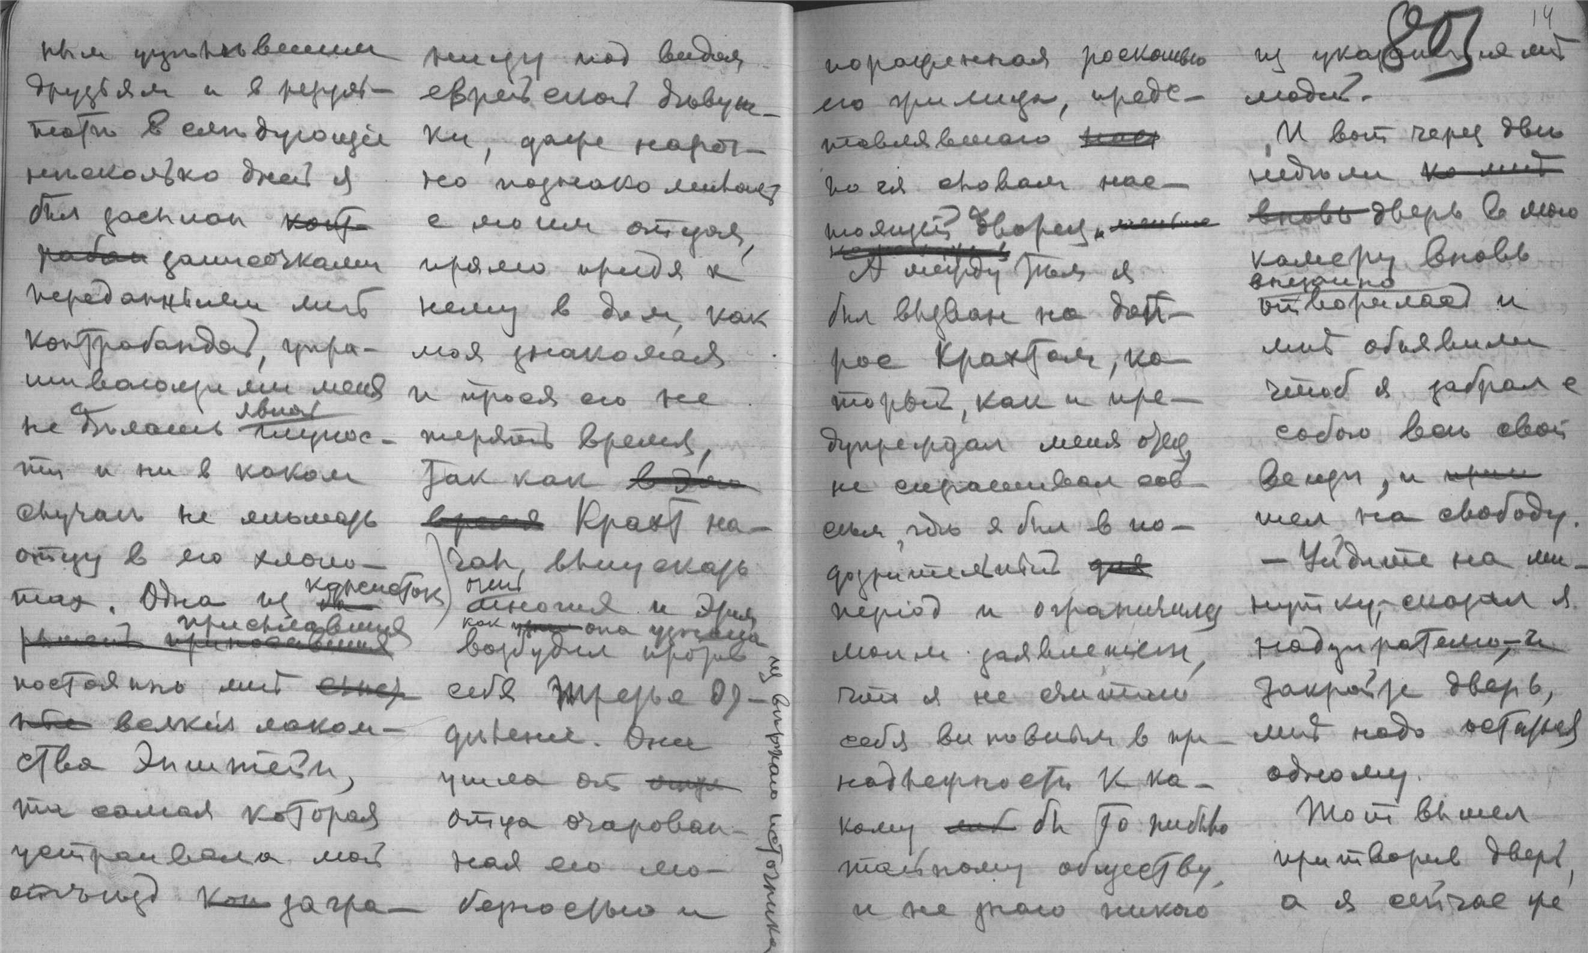 нымъ узникъ вашимъ
друзьям и в резуль-
тате в следующіе
несколько дней я
был засыпан конт-
рабан записочками
переданными мне
контрабандой, упра-
шивающими меня
не делать явной глупос-
ти и ни в каком
случае не мешать
отцу в его хлопо-
тах. Одна из курсисток
присылавшая
постоянно мне
всякія лаком-
ства Эпштейн,
та самая которая
устраивала мой
отъезд загра-
ницу под видом
еврейской девуш-
ки, даже нароч-
но познакомилась
с моим отцом,
прямо придя к
нему в дом, как
моя знакомая
и прося его не
терять время,
так как в это
время Крахт на-
чал выпускать
многих и
как она узнала
из вернаго источника
возбудил против
себя Третье От-
деление. Она
ушла от
отца очарован-
ная его лю-
безностью и
пораженная роскошью
его жилища, предс-
тавлявшаго
по ея словам нас-
тоящій дворец.
А между тем я
был вызван на доп-
рос Крахтом, ко-
торый, как и пре-
дупреждал меня отец,
не спрашивал сов-
сем, где я был в по-
дозрительный для
период и ограничился
моим заявленіем,
что я не считаю
себя виновным в при-
надлежности к ка-
кому бы то ни было
тайному обществу,
и не знаю никого
из указанных мне
людей.
И вот через две
недели ко мне
вновь дверь в мою
камеру вновь
внезапно
отворилась и
мне объявили
чтоб я забрал с
собою все свои
вещи, и
шел на свободу.
— Уйдите на ми-
нутку, сказал я
надзирателю, и
закройте дверь,
мне надо остаться
одному.
Тот вышел
притворив дверь,
а я сейчас же
14